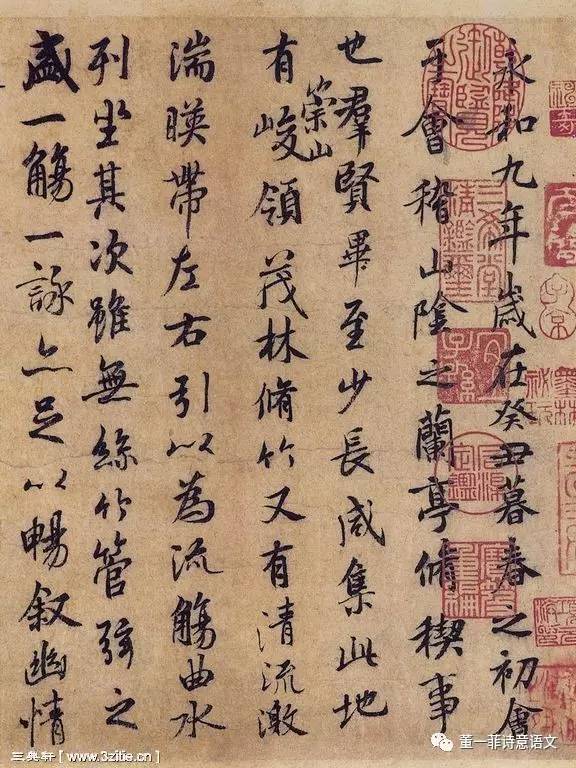 永和九年歲在癸丑暮春之初會
于會稽山陰之蘭亭脩稧事
也羣賢畢至少長咸集此地
有崇山峻領茂林脩竹又有清流激
湍暎帶左右引以為流觴曲水
列坐其次雖無絲竹管弦之
盛一觴一詠亦足以暢叙幽情
三典轩【www.3zitie.cn】
董一菲诗意语文